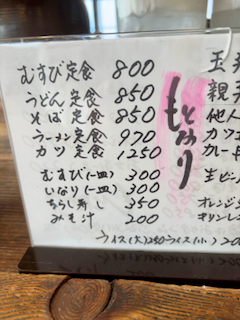 むすび定食 800
うどん定食 850
そば定食 850
ラーメン定食 970
カツ定食 1250
むすび(一皿) 300
いなり(一皿) 300
ちらし寿し 350
みそ汁 200
ライス(大)250 ライス(小)
もとなり
玉
親
他人
カツ
カレー
生ビー
オレンジ
キリンレ